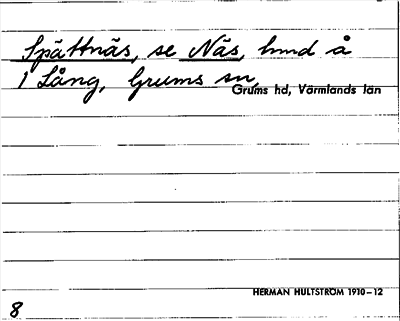 Spättnäs, se Näs, hmd å
1 Lång, Grums sn,
Grums hd, Värmlands län
HERMAN HULTSTRÖM 1910–12
8